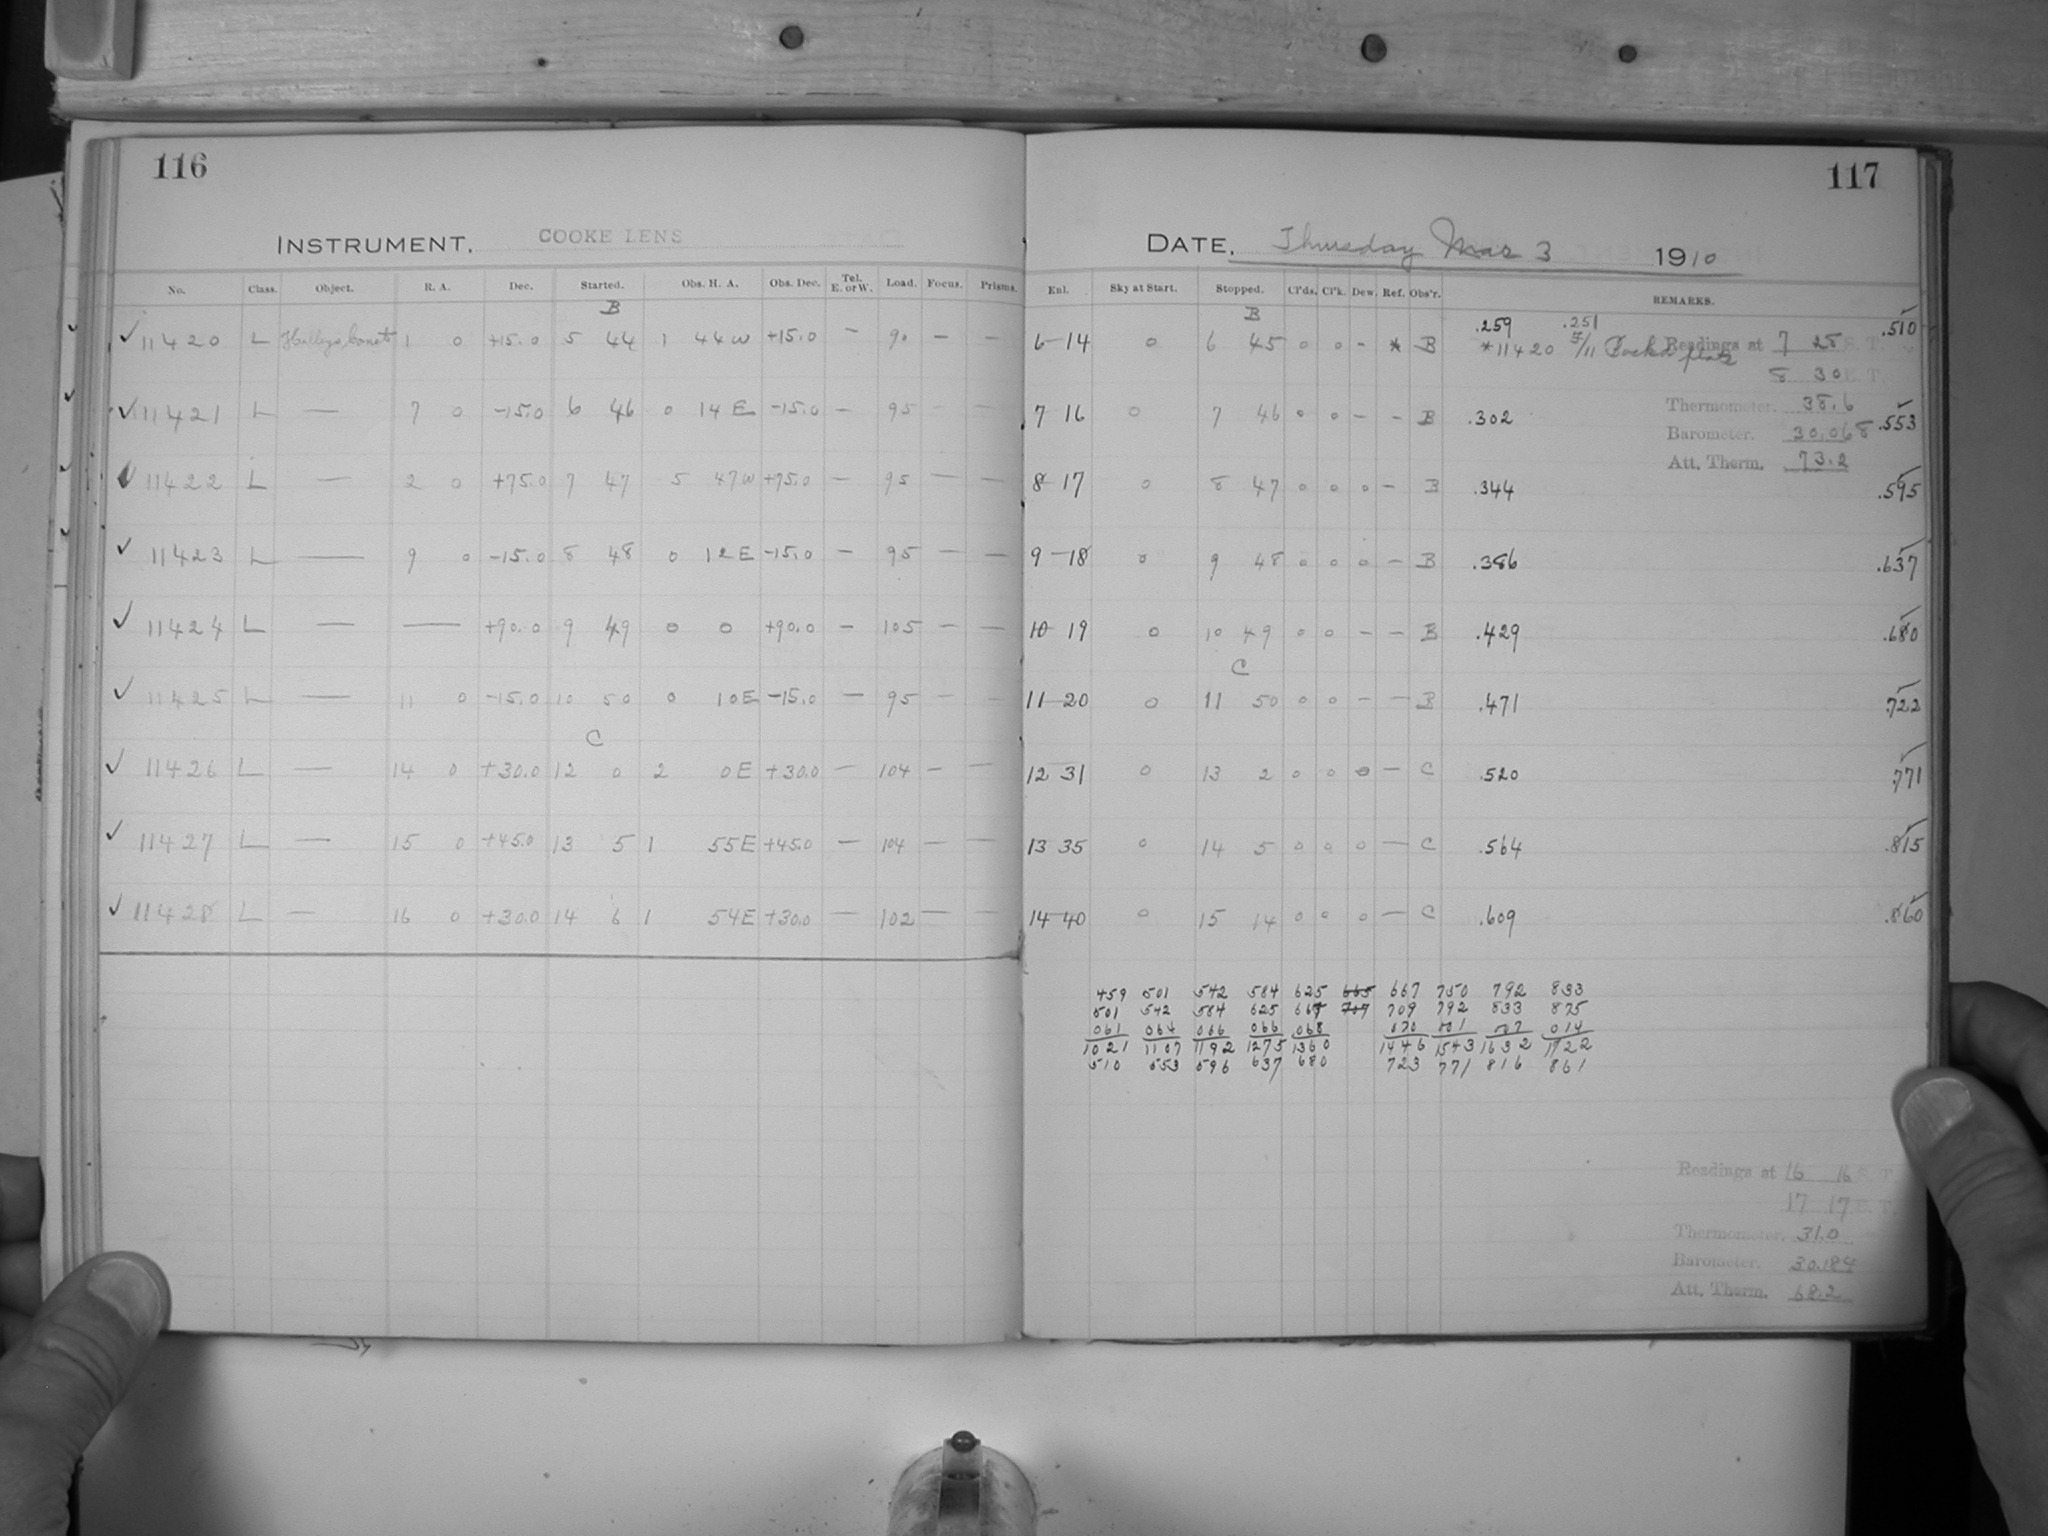 116
INSTRUMENT. COOKE LENS
No. Class. Object. R. A. Dec. Started. Obs. H. A. Obs. Dec. Tel. E. or W. Load. Focus. Prisms.
B
✓ 11420 L Halleys Comet 1 0 +15.0 5 44 1 44 W +15.0 — 90 — —
✓ 11421 L — 7 0 -15.0 6 46 0 14 E -15.0 — 95 — —
✓ 11422 L — 2 0 +75.0 7 47 5 47 W +75.0 — 95 — —
✓ 11423 L — 9 0 -15.0 8 48 0 12 E -15.0 — 95 — —
✓ 11424 L — — +90.0 9 49 0 0 +90.0 — 105 — —
✓ 11425 L — 11 0 -15.0 10 50 0 10 E -15.0 — 95 — —
C
✓ 11426 L — 14 0 +30.0 12 0 2 0 E +30.0 — 104 — —
✓ 11427 L — 15 0 +45.0 13 5 1 55 E +45.0 — 104 — —
✓ 11428 L — 16 0 +30.0 14 6 1 54 E +30.0 — 102 — —
117
DATE, Thursday Mar 3 1910
Enl. Sky at Start. Stopped. Cl'ds. Cl'k. Dew. Ref. Obs'r. REMARKS.
B
6-14 0 6 45 0 0 - * B .259 .251 .510
*11420 F/11 plate Readings at 7 28 S. T.
8 30 E. T.
7 16 0 7 46 0 0 - - B .302 .553
Thermometer. 38.6
Barometer. 30.068
Att. Therm. 73.2
8-17 0 8 47 0 0 0 - B .344 .595
9-18 0 9 48 0 0 0 - B .386 .637
10-19 0 10 49 0 0 - - B .429 .680
C
11-20 0 11 50 0 0 - - B .471 .722
12 31 0 13 2 0 0 0 - C .520 .771
13 35 0 14 5 0 0 0 - C .564 .815
14-40 0 15 14 0 0 0 - C .609 .860
459 501 542 584 625 665 667 750 792 833
501 542 584 625 667 707 709 792 833 875
061 064 066 066 068 070 001 007 014
1021 1107 1192 1275 1360 1446 1543 1632 1722
510 553 596 637 680 723 771 816 861
Readings at 16 16 S. T.
17 17 E. T.
Thermometer. 31.0
Barometer. 30.184
Att. Therm. 68.2